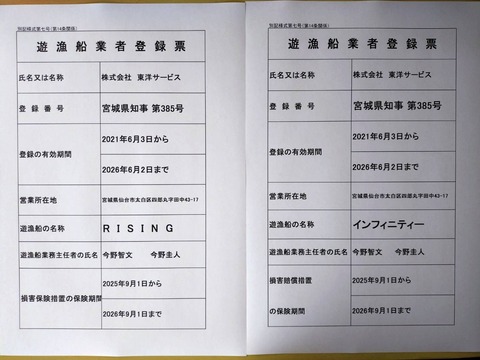 別記様式第七号(第14条関係)
遊漁船業者登録票
氏名又は名称 株式会社 東洋サービス
登録番号 宮城県知事 第385号
登録の有効期間 2021年6月3日から
2026年6月2日まで
営業所在地 宮城県仙台市太白区四郎丸字田中43-17
遊漁船の名称 RISING
遊漁船業務主任者の氏名 今野智文 今野圭人
損害保険措置の保険期間 2025年9月1日から
2026年9月1日まで
別記様式第七号(第14条関係)
遊漁船業者登録票
氏名又は名称 株式会社 東洋サービス
登録番号 宮城県知事 第385号
登録の有効期間 2021年6月3日から
2026年6月2日まで
営業所在地 宮城県仙台市太白区四郎丸字田中43-17
遊漁船の名称 インフィニティー
遊漁船業務主任者の氏名 今野智文 今野圭人
損害賠償措置 2025年9月1日から
の保険期間 2026年9月1日まで